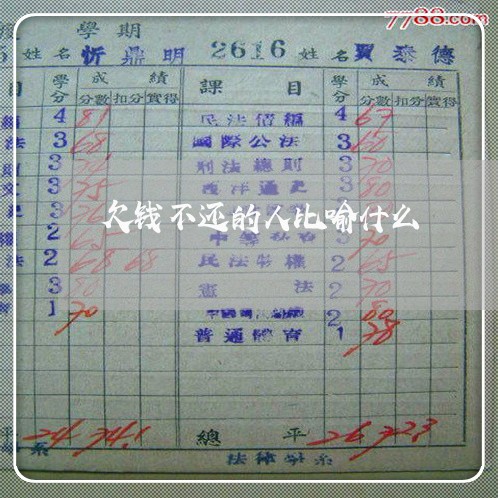 7788.com
度 學期
5 姓名 忻鼎明 2616 姓名 賈泰德
目 學分 成績 課目 學分 成績
分數 扣分 實得 分數 扣分 實得
4 81 民法債編 4 67
法 3 68 國際公法 3 60
3 刑法總則 3 70
3 75 西洋通史 3 80
3
欠钱不还的人比喻什么
2 3 70
法 2 68 68 民法物權 2 65
3 80 憲法 2 70
1 70 2 80
普通體育 1 78
平 24 74.1 總平 26 72.3
系 法律學系